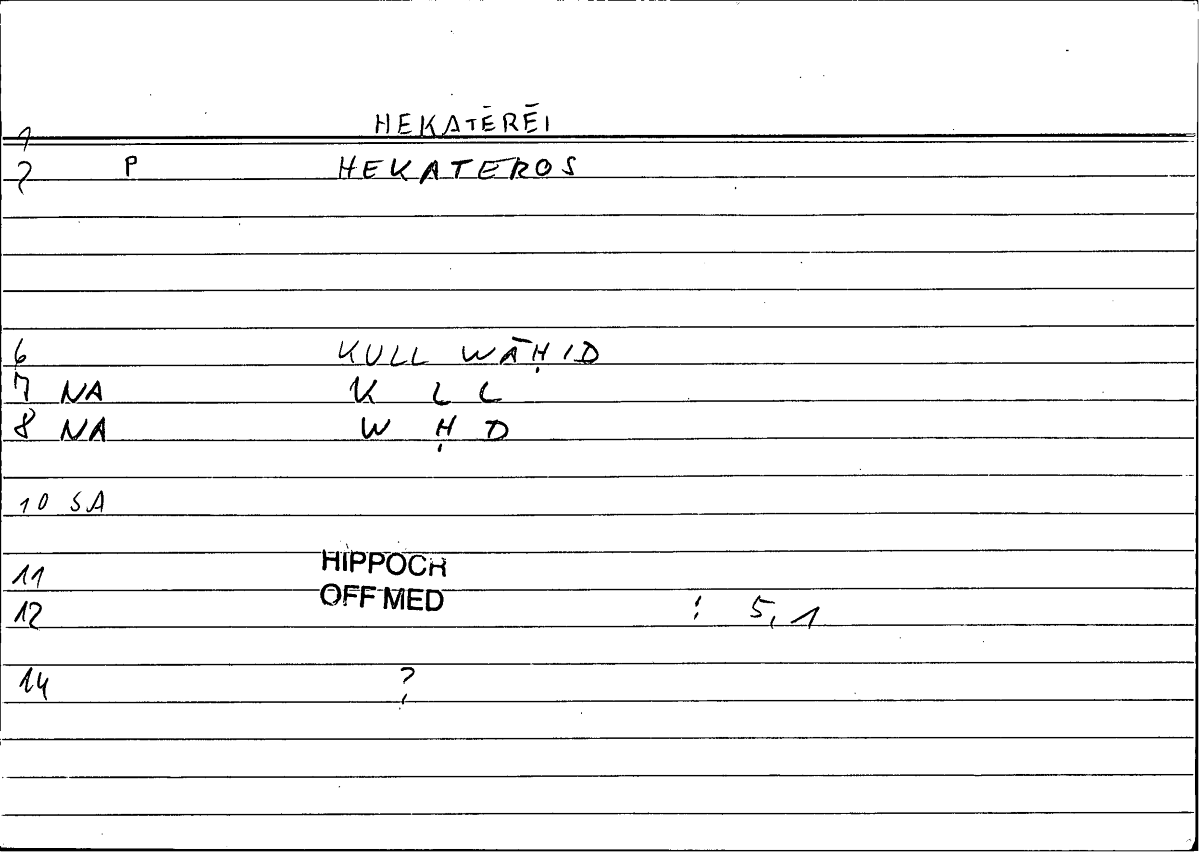 1 HEKATĒRĒI
2 P HEKATEROS
6 KULL WĀḤID
7 NA K L L
8 NA W Ḥ D
10 SA
11 HIPPOCR
12 OFF MED : 5,1
14 ?